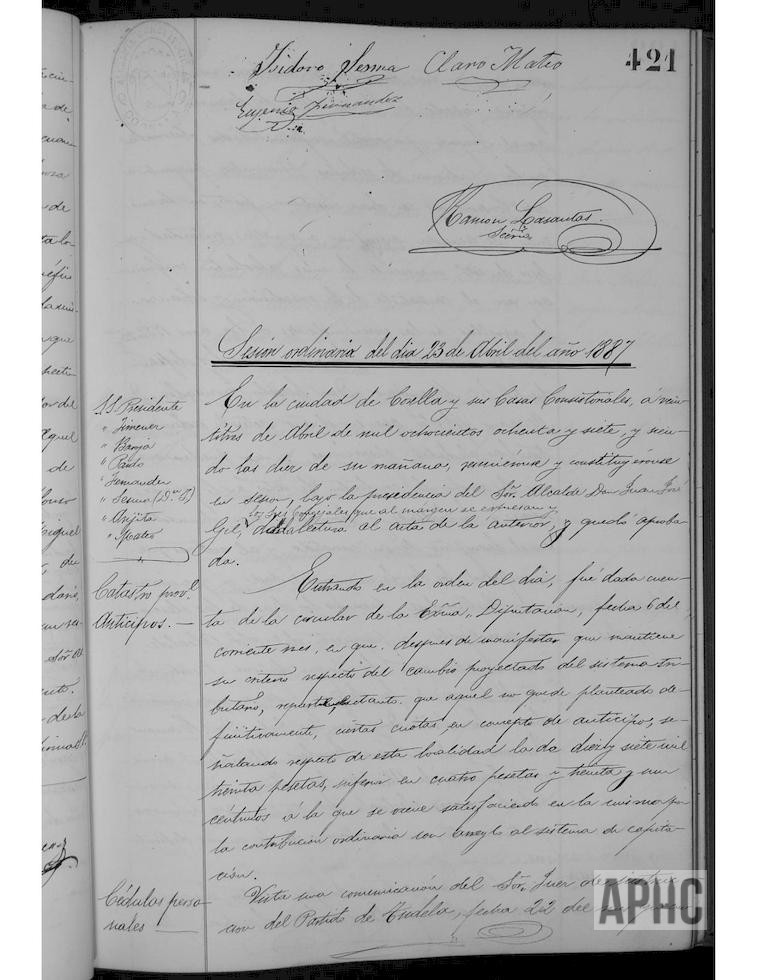 421
Isidoro Serma Claro Mateo
Eugenio Fernandez
Ramon Lasantas.
Scrio
Sesión ordinaria del dia 23 de Abril del año 1887
SS. Presidente
" Jimenez
" Pardo
" Fernandez
" Arijita
" Mateo
En la ciudad de Corella y sus Casas Consistoriales, á vein-
titres de Abril de mil ochocientos ochenta y siete, y sien-
do las diez de su mañana, reunierónse y constituyéronse
en sesion, bajo la presidencia del Sor. Alcalde Don Juan José
los Sres. concejales que al margen se expresan y
Gil, dada lectura al acta de la anterior, y quedó aproba-
da.
Catastro provl.
Anticipos. —
Entrando en la orden del dia, fué dada cuen-
ta de la circular de la Exma. Diputacion, fecha 6 del
corriente mes, en que despues de manifestar que mantiene
su criterio respecto del cambio proyectado del sistema tri-
butario, reparte, en tanto que aquel no quede planteado de-
finitivamente, ciertas cuotas en concepto de anticipo, se-
ñalando respecto de esta localidad la de diez y siete mil
treinta pesetas, inferior en cuatro pesetas y treinta y un
céntimos á la que se viene satisfaciendo en la misma por
la contribucion ordinaria con arreglo al sistema de capita-
cion.
Cédulas perso-
nales —
Vista una comunicación del Sor. Juez de
cion del Partido de Tudela, fecha 22 del
APHC